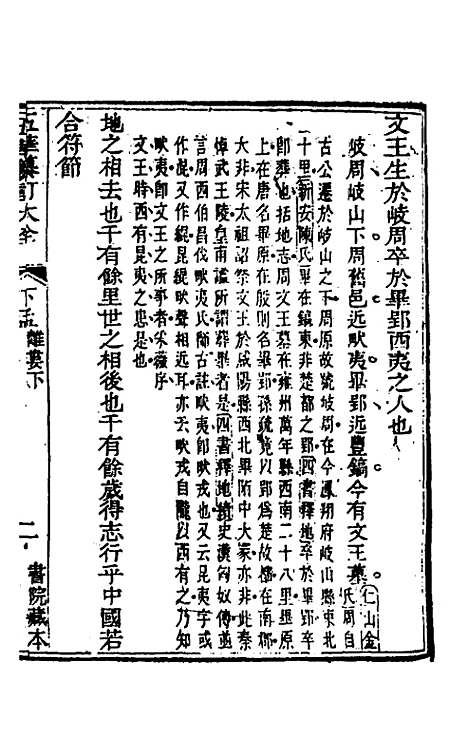 文王生於岐周卒於畢郢西夷之人也
岐周岐山下周舊邑近畎夷畢郢近豐鎬今有文王墓
仁山金
氏周自
古公遷於岐山之下周原故號岐周在今鳳翔府岐山縣東北
十里新安陳氏畢在鎬東非楚都之郢四書釋地卒於畢郢卒
卽葬也括地志周文王墓在雍州萬年縣西南二十八里畢原
上在唐名畢原在殷則名畢郢孫疏竟以郢爲楚故
在南郡
大非宋太祖詔祭文王於咸陽縣西北畢陌中大冢亦非此秦
悼武王陵皇甫謐所謂葬畢者是四書釋地
史漢匈奴傳並
言周西伯昌伐畎夷氏師古註畎夷卽昆夷也昆字或
作混又作緄緄畎聲相近耳亦云畎戎自隴以西有之乃知
畎夷卽文王之所事者采薇序
文王時西有昆夷之患是也
地之相去也千有餘里世之相後也千有餘歲得志行乎中國若
合符節
大全
下孟
離婁下
二
書院藏本